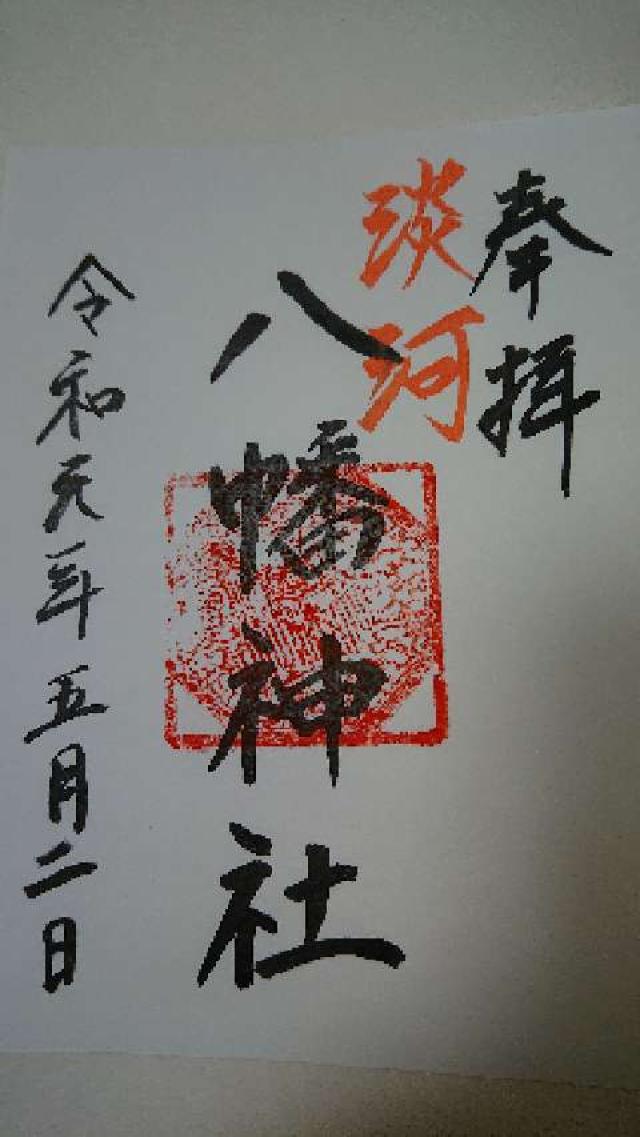 奉拝
淡河
八幡神社
令和元年五月二日